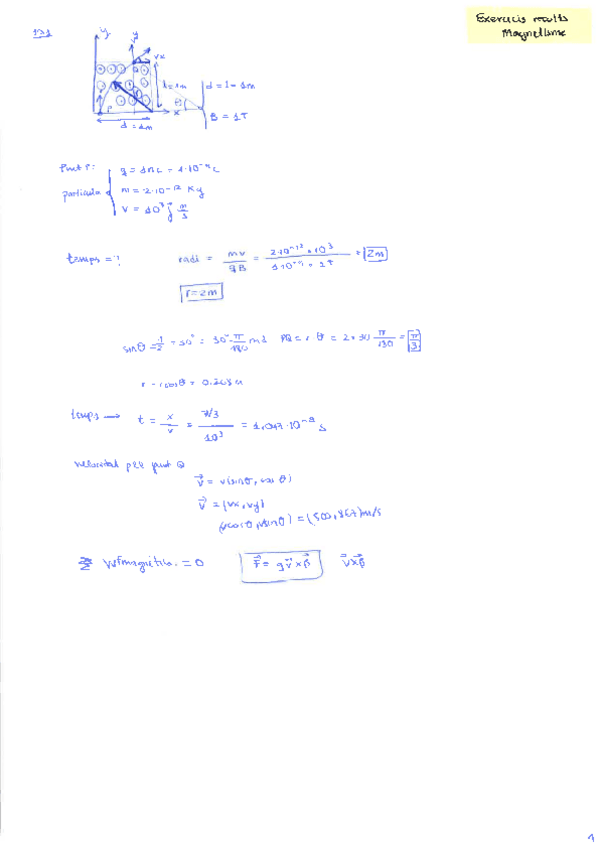 Exercicis
Magnetisme
y y
vx
l=1m
d=1-1m
θ
P
x
B = 1T
d = 1m
Punt P:
q = 1nC = 1·10⁻⁹ C
particula
m = 2·10⁻¹² Kg
v = 10³ m/s
temps = ?
radi = mv/qB = 2·10⁻¹²·10³ / 1·10⁻⁹·1T = 2m
r=2m
sinθ = 1/2 = 30° = 30°·π/180 rad PQ = r θ = 2·30 π/180 = π/3
r - rcosθ = 0.268 m
temps → t = x/v = π/3 / 10³ = 1,047·10⁻³ s
velocitat pel punt Q
v⃗ = v(sinθ, cosθ)
v⃗ = (vx, vy)
(vcosθ, vsinθ) = (500, 867) m/s
magnètica = 0 F⃗ = qv⃗×B⃗ v⃗×B⃗
1